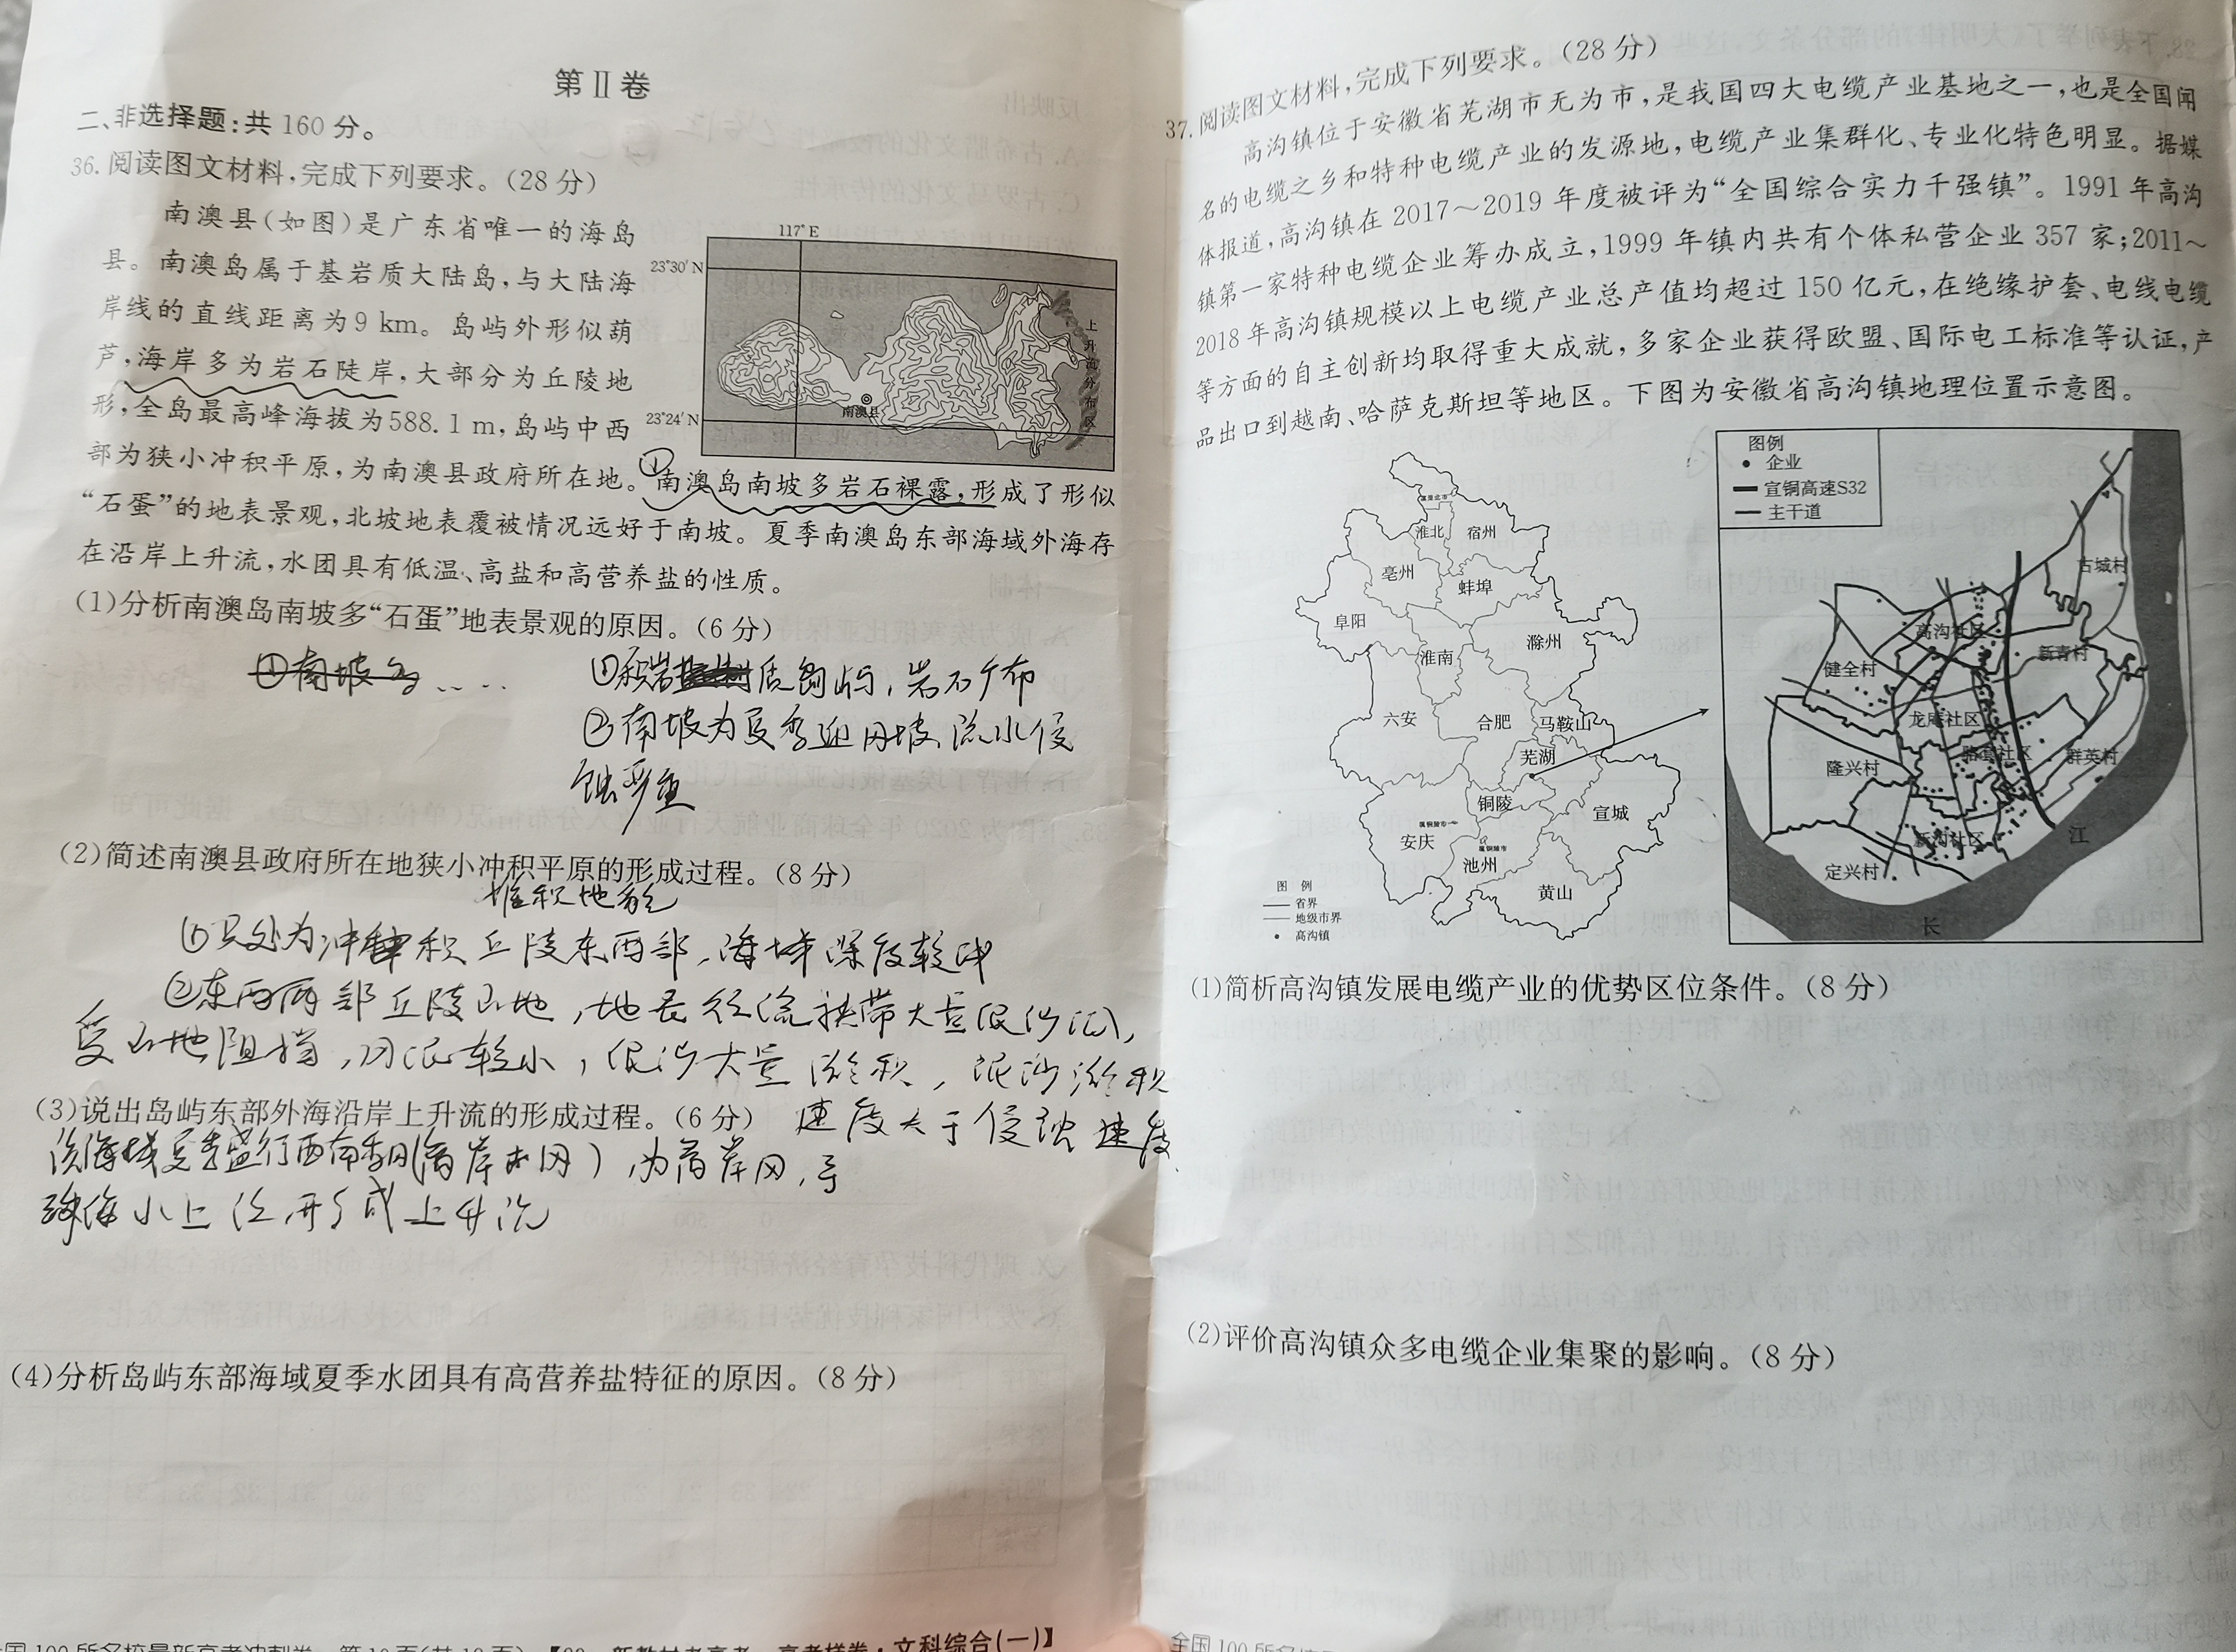 第Ⅱ卷
二、非选择题:共160分。
36. 阅读图文材料,完成下列要求。(28分)
南澳县(如图)是广东省唯一的海岛
县。南澳岛属于基岩质大陆岛,与大陆海
岸线的直线距离为9 km。岛屿外形似葫
芦,海岸多为岩石陡岸,大部分为丘陵地
形,全岛最高峰海拔为588.1 m,岛屿中西
部为狭小冲积平原,为南澳县政府所在地。①南澳岛南坡多岩石裸露,形成了形似
“石蛋”的地表景观,北坡地表覆被情况远好于南坡。夏季南澳岛东部海域外海存
在沿岸上升流,水团具有低温、高盐和高营养盐的性质。
117°E
23°30′N
23°24′N
南澳县
上升流分布区
(1)分析南澳岛南坡多“石蛋”地表景观的原因。(6分)
①南坡多……
岩质岛屿,岩石广布
②南坡为夏季迎风坡、流水侵
蚀严重
(2)简述南澳县政府所在地狭小冲积平原的形成过程。(8分)
堆积地貌
丘陵东西部,海域深度较浅
②东西两部丘陵山地,地表径流挟带大量泥沙
受山地阻挡,风浪较小,泥沙大量淤积,泥沙淤积
速度大于侵蚀速度
(3)说出岛屿东部外海沿岸上升流的形成过程。(6分)
该海域夏季盛行西南季风(离岸风),为离岸风,导
致海水上泛,形成上升流
(4)分析岛屿东部海域夏季水团具有高营养盐特征的原因。(8分)
文科综合(一)】
37. 阅读图文材料,完成下列要求。(28分)
高沟镇位于安徽省芜湖市无为市,是我国四大电缆产业基地之一,也是全国闻
名的电缆之乡和特种电缆产业的发源地,电缆产业集群化、专业化特色明显。据媒
体报道,高沟镇在2017～2019年度被评为“全国综合实力千强镇”。1991年高沟
镇第一家特种电缆企业筹办成立,1999年镇内共有个体私营企业357家;2011～
2018年高沟镇规模以上电缆产业总产值均超过150亿元,在绝缘护套、电线电缆
等方面的自主创新均取得重大成就,多家企业获得欧盟、国际电工标准等认证,产
品出口到越南、哈萨克斯坦等地区。下图为安徽省高沟镇地理位置示意图。
淮北
宿州
亳州
蚌埠
阜阳
淮南
滁州
六安
合肥
马鞍山
芜湖
铜陵
宣城
安庆
池州
黄山
图 例
省界
地级市界
高沟镇
图例
企业
宣铜高速S32
主干道
古城村
高沟社区
新青村
健全村
龙庵社区
群英村
隆兴村
新沟社区
定兴村
长
江
(1)简析高沟镇发展电缆产业的优势区位条件。(8分)
(2)评价高沟镇众多电缆企业集聚的影响。(8分)